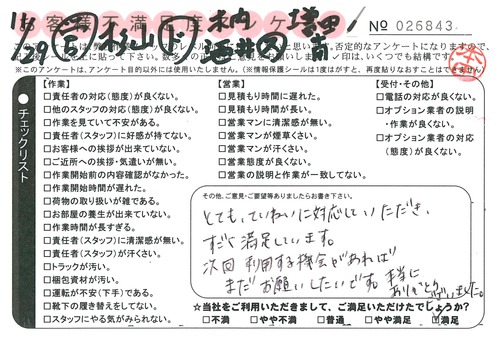 お客様不満足度アンケート
No 026843
※このアンケートは、アンケート目的以外には使用いたしません。(※情報保護シールは1度がはすと、再度貼りなおすことはできません)
チェックリスト
【作業】
□責任者の対応(態度)が良くない。
□他のスタッフの対応(態度)が良くない。
□作業を見ていて不安がある。
□責任者(スタッフ)に好感が持てない。
□お客様への挨拶が出来ていない。
□ご近所への挨拶・気遣いが無い。
□作業開始前の内容確認がなかった。
□作業開始時間が遅れた。
□荷物の取り扱いが雑である。
□お部屋の養生が出来ていない。
□作業時間が長すぎる。
□責任者(スタッフ)に清潔感が無い。
□責任者(スタッフ)が汗くさい。
□トラックが汚い。
□梱包資材が汚い。
□運転が不安(下手)である。
□靴下の履き替えをしてない。
□スタッフにやる気がみられない。
【営業】
□見積もり時間に遅れた。
□見積もり時間が長い。
□営業マンに清潔感が無い。
□営業マンが煙草くさい。
□営業マンが汗くさい。
□営業態度が良くない。
□営業の説明と作業が一致してない。
【受付・その他】
□電話の対応が良くない。
□オプション業者の説明
・作業が良くない。
□オプション業者の対応
(態度)が良くない。
その他、ご意見・ご要望等ありましたらお書き下さい。
とても、ていねいに対応していただき、
すごく満足しています。
次回利用する機会があれば
またお願いしたいです。本当に
ありがとうございました。
☆当社をご利用いただきまして、ご満足いただけたでしょうか?
□不満 □やや不満 □普通 □やや満足 □満足